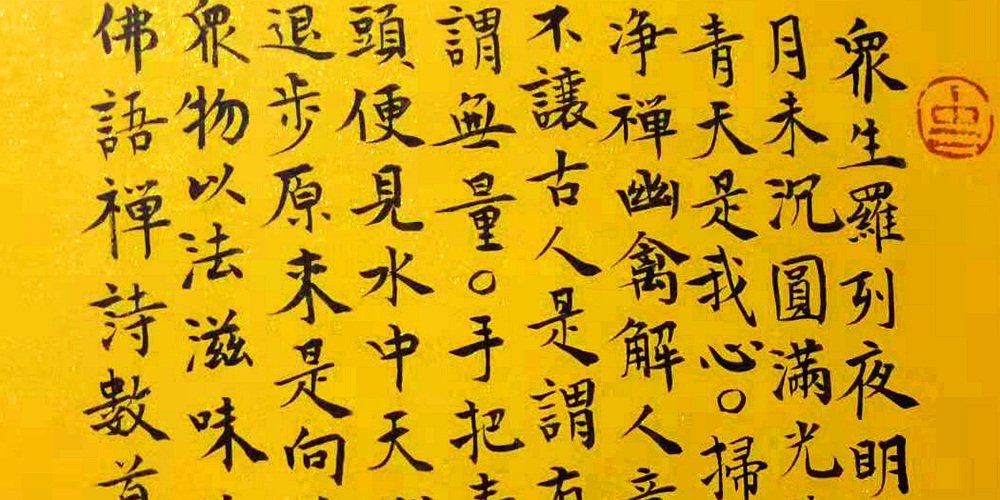 衆生羅列夜明
月未沉圓滿光
青天是我心○掃
净禅幽禽解人
不讓古人是謂
謂無量○手把
頭便見水中天
退步原來是向
衆物以法滋味
佛語禅詩數